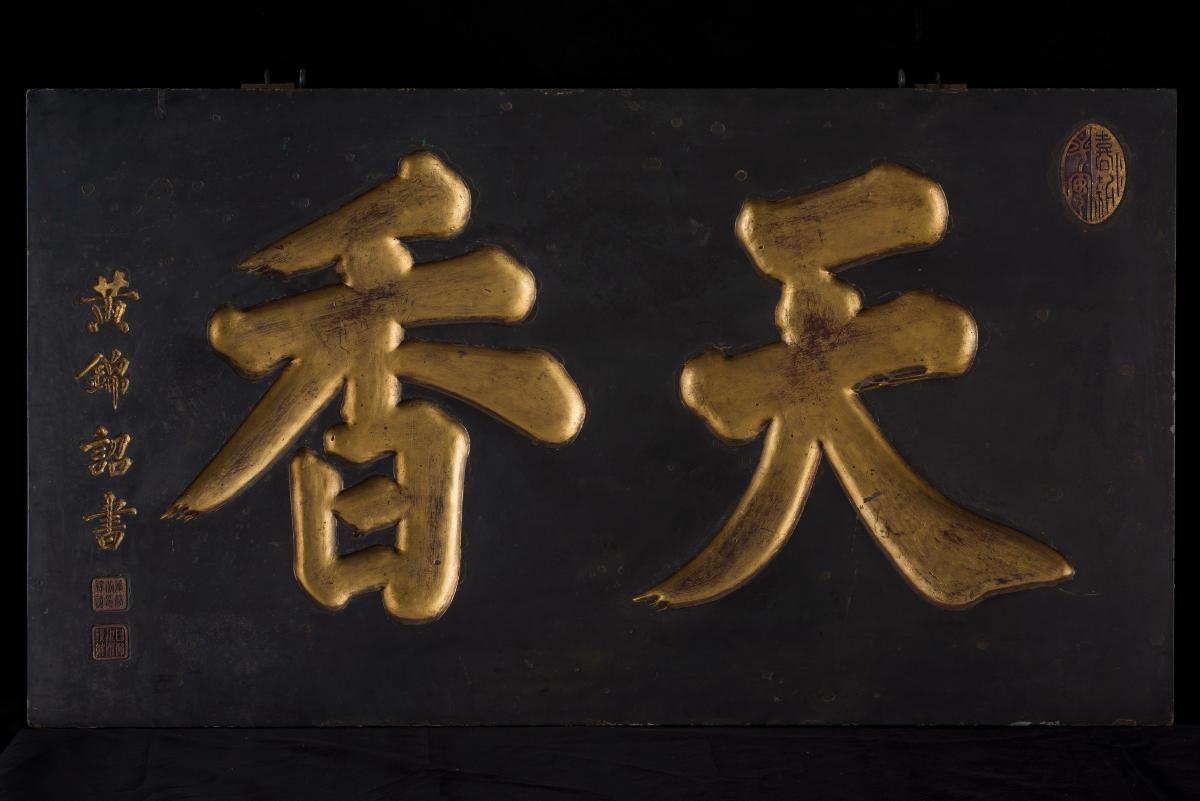 天香
黄錦詔書